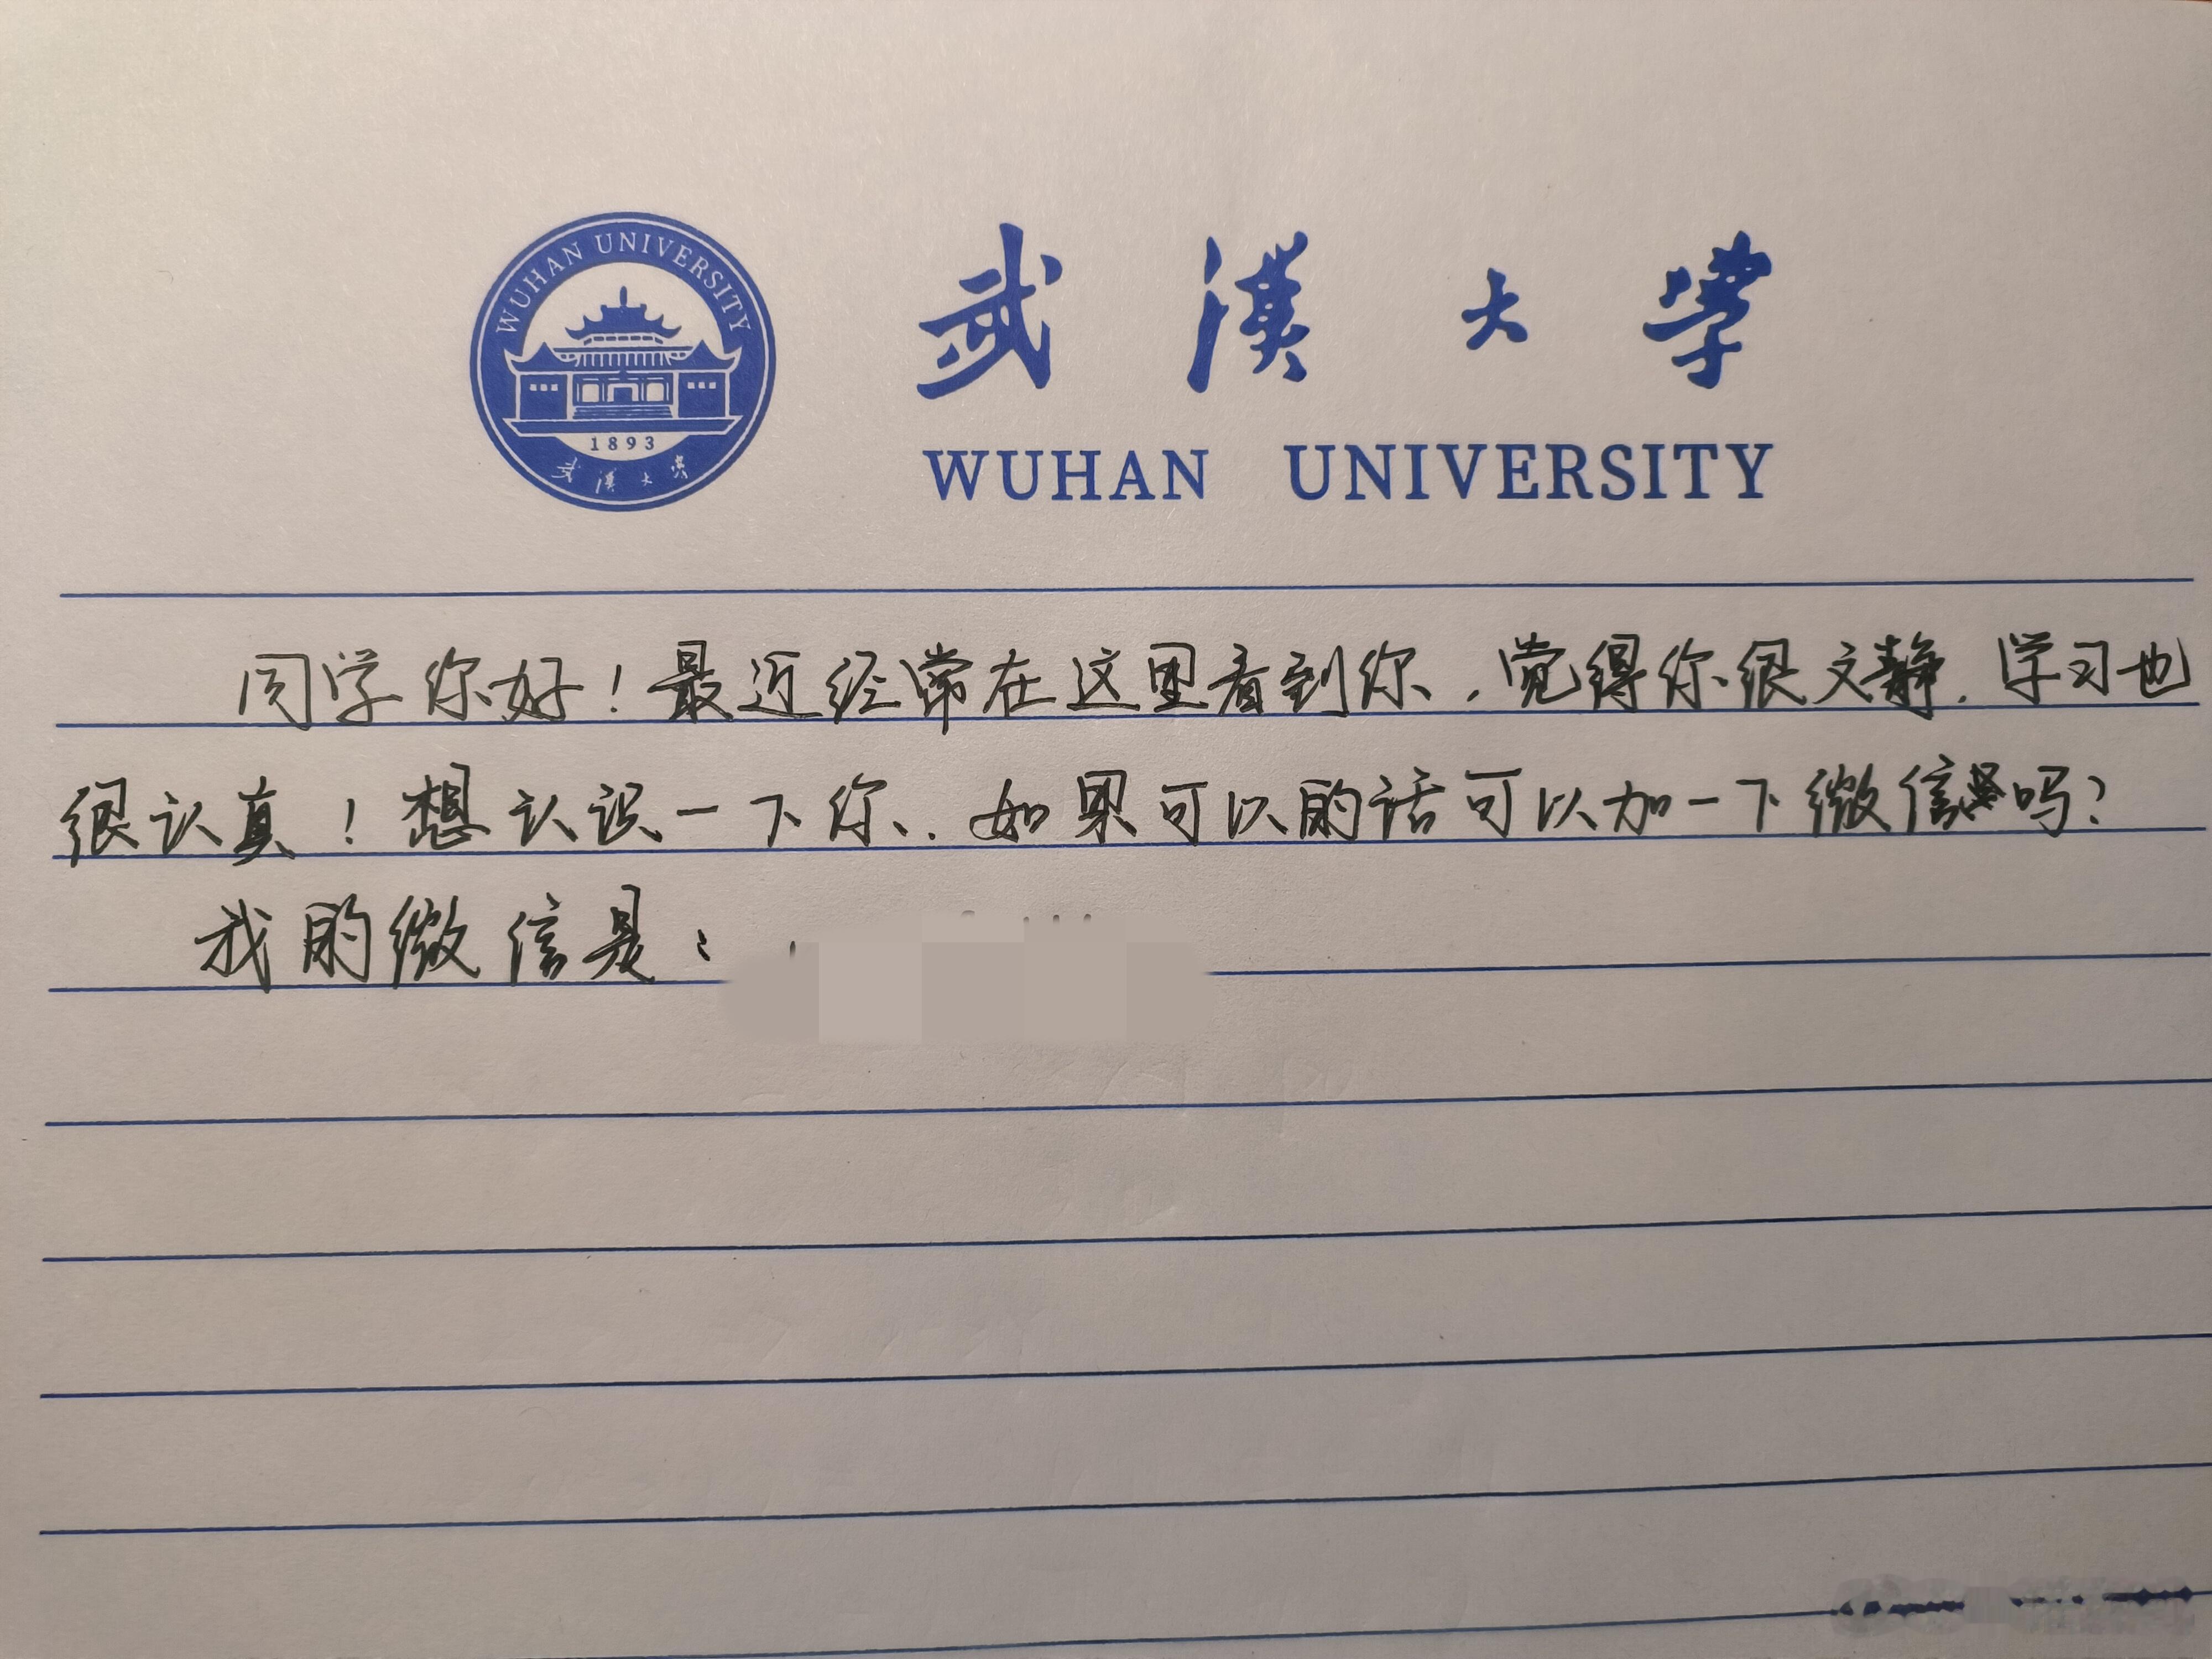 WUHAN UNIVERSITY
1893
武漢大學
武漢大學
WUHAN UNIVERSITY
同学你好！最近经常在这里看到你，觉得你很文静，学习也
很认真！想认识一下你，如果可以的话可以加一下微信吗？
我的微信是：